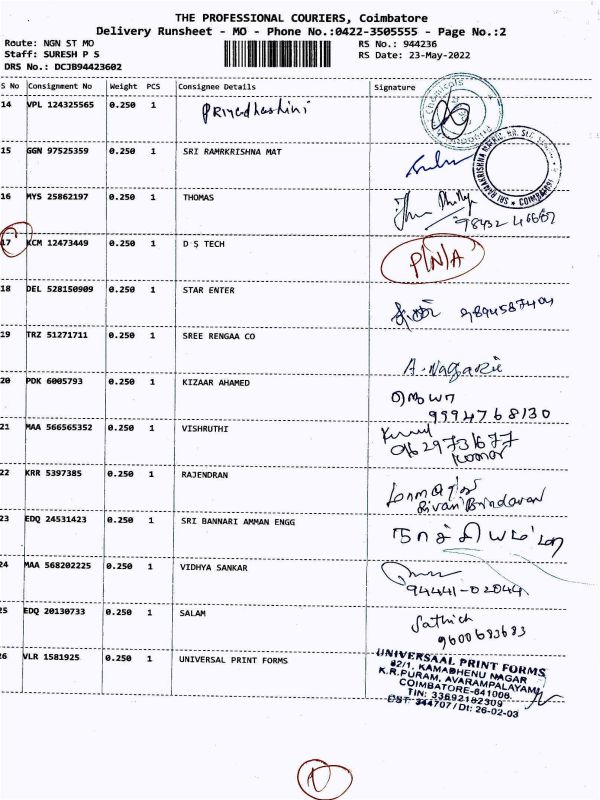 THE PROFESSIONAL COURIERS, Coimbatore
Delivery Runsheet - MO - Phone No.:0422-3505555 - Page No.:2
Route: NGN ST MO RS No.: 944236
Staff: SURESH P S RS Date: 23-May-2022
DRS No.: DCJB94423602
S No Consignment No Weight PCS Consignee Details Signature
14 VPL 124325565 0.250 1 Priyadhashini
15 GGN 97525359 0.250 1 SRI RAMRKRISHNA MAT
16 MYS 25862197 0.250 1 THOMAS
17 KCM 12473449 0.250 1 D S TECH P/N/A
18 DEL 528150909 0.250 1 STAR ENTER
19 TRZ 51271711 0.250 1 SREE RENGAA CO
20 PDK 6005793 0.250 1 KIZAAR AHAMED
9994768130
21 MAA 566565352 0.250 1 VISHRUTHI
9629731677
22 KRR 5397385 0.250 1 RAJENDRAN
Brindavan
23 EDQ 24531423 0.250 1 SRI BANNARI AMMAN ENGG
24 MAA 568202225 0.250 1 VIDHYA SANKAR
94441-02044
25 EDQ 20130733 0.250 1 SALAM Sathich
9600683683
26 VLR 1581925 0.250 1 UNIVERSAL PRINT FORMS
UNIVERSAAL PRINT FORMS
82/1, KAMADHENU NAGAR
K.R.PURAM, AVARAMPALAYAM
COIMBATORE-641006.
TIN: 33692182309
CST: 344707 / Dt: 26-02-03